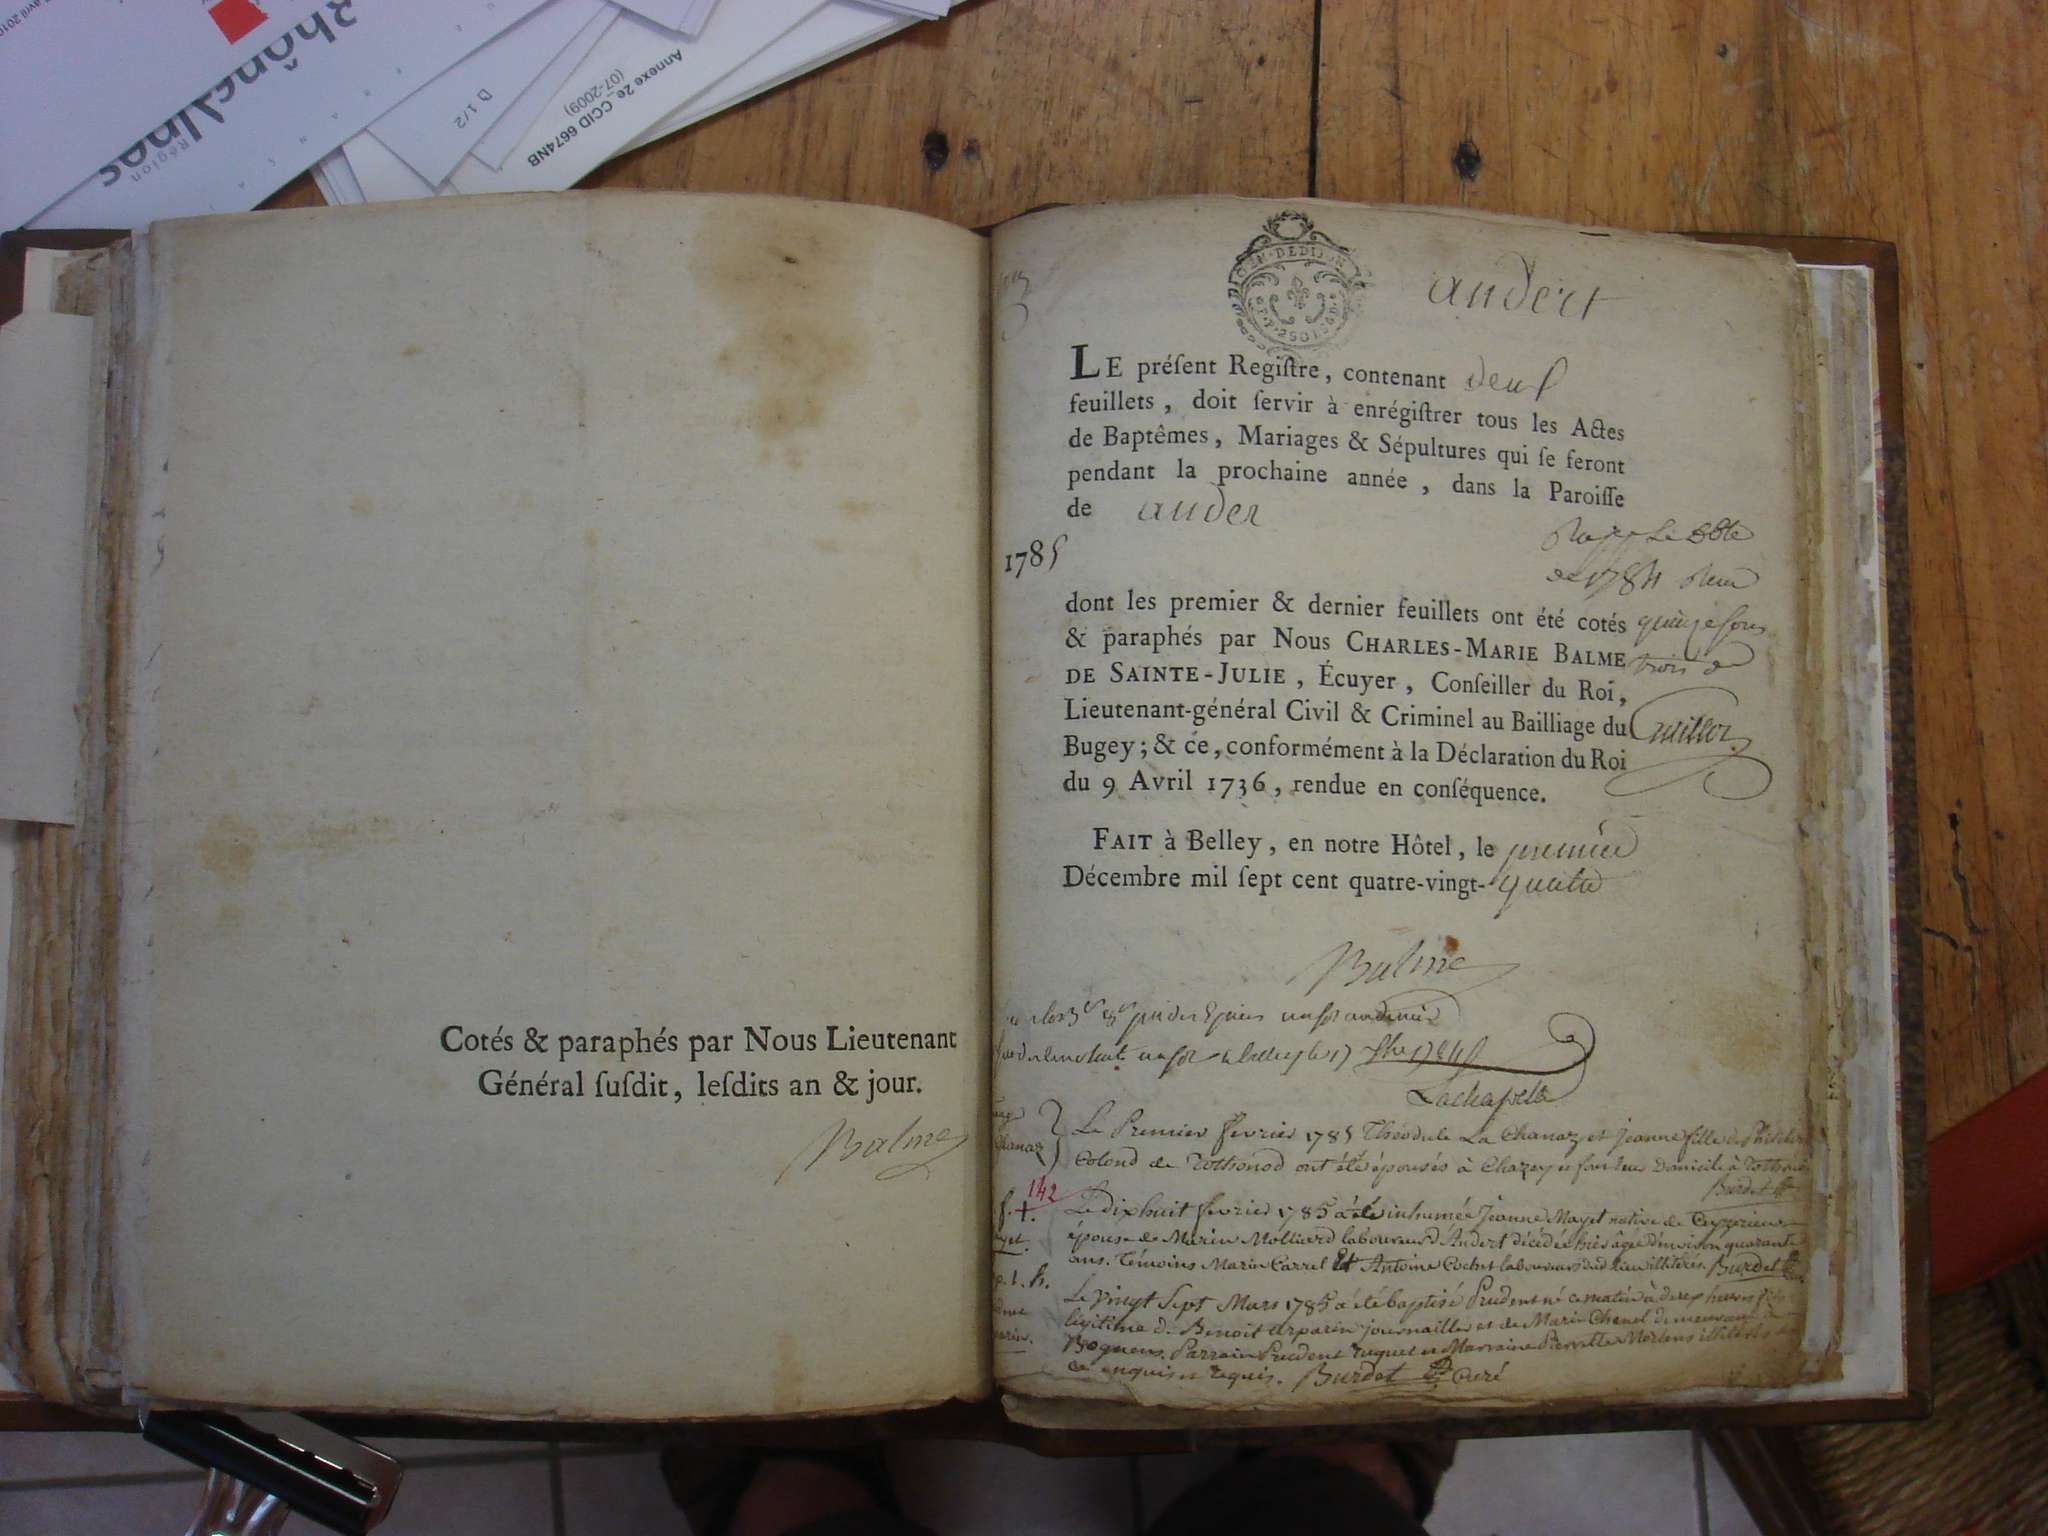 Rhône Alpes
Région
D 1/2
Annexe 2e_CCID 6674NB
(07-2009)
Cotés & paraphés par Nous Lieutenant
Général ſuſdit, leſdits an & jour.
Balme
GEN. DE DIJON
andert
LE préſent Regiſtre, contenant deux
feuillets, doit ſervir à enrégiſtrer tous les Actes
de Baptêmes, Mariages & Sépultures qui ſe feront
pendant la prochaine année, dans la Paroiſſe
de ander
1785
de 1784
dont les premier & dernier feuillets ont été cotés
& paraphés par Nous CHARLES-MARIE BALME
DE SAINTE-JULIE, Écuyer, Conſeiller du Roi,
Lieutenant-général Civil & Criminel au Bailliage du
Bugey; & ce, conformément à la Déclaration du Roi
du 9 Avril 1736, rendue en conſéquence.
quinze sous
trois d
FAIT à Belley, en notre Hôtel, le premier
Décembre mil ſept cent quatre-vingt-quatre
Balme
Lachapelle
Chanaz
Le Premier fevrier 1785 Théodule La Chanaz et Jeanne fille de
Colond de Rothonod ont été épousés à Chazey et font leur Domicile à
Burdet
142
Le dixhuit fevrier 1785 a été inhumée Jeanne Mayet native de
épouse de Marin Molliard laboureur d'Andert décédée hier âgée d'environ quarante
ans. Témoins Marin Carrel et Antoine Cochet laboureurs dud. lieu illitérés. Burdet
Le vingt Sept Mars 1785 a été baptisé Prudent né ce matin à heures fils
légitime de Benoit journaillier et de Marie demeurant à
Bognens. Parrain Prudent et Marraine illitérés
de ce enquis et requis. Burdet Curé